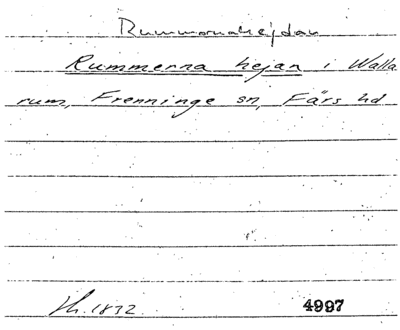 Rummornahejdan
Rummerna hejan i Walla
rum, Frenninge sn, Färs hd
Th. 1832 4997